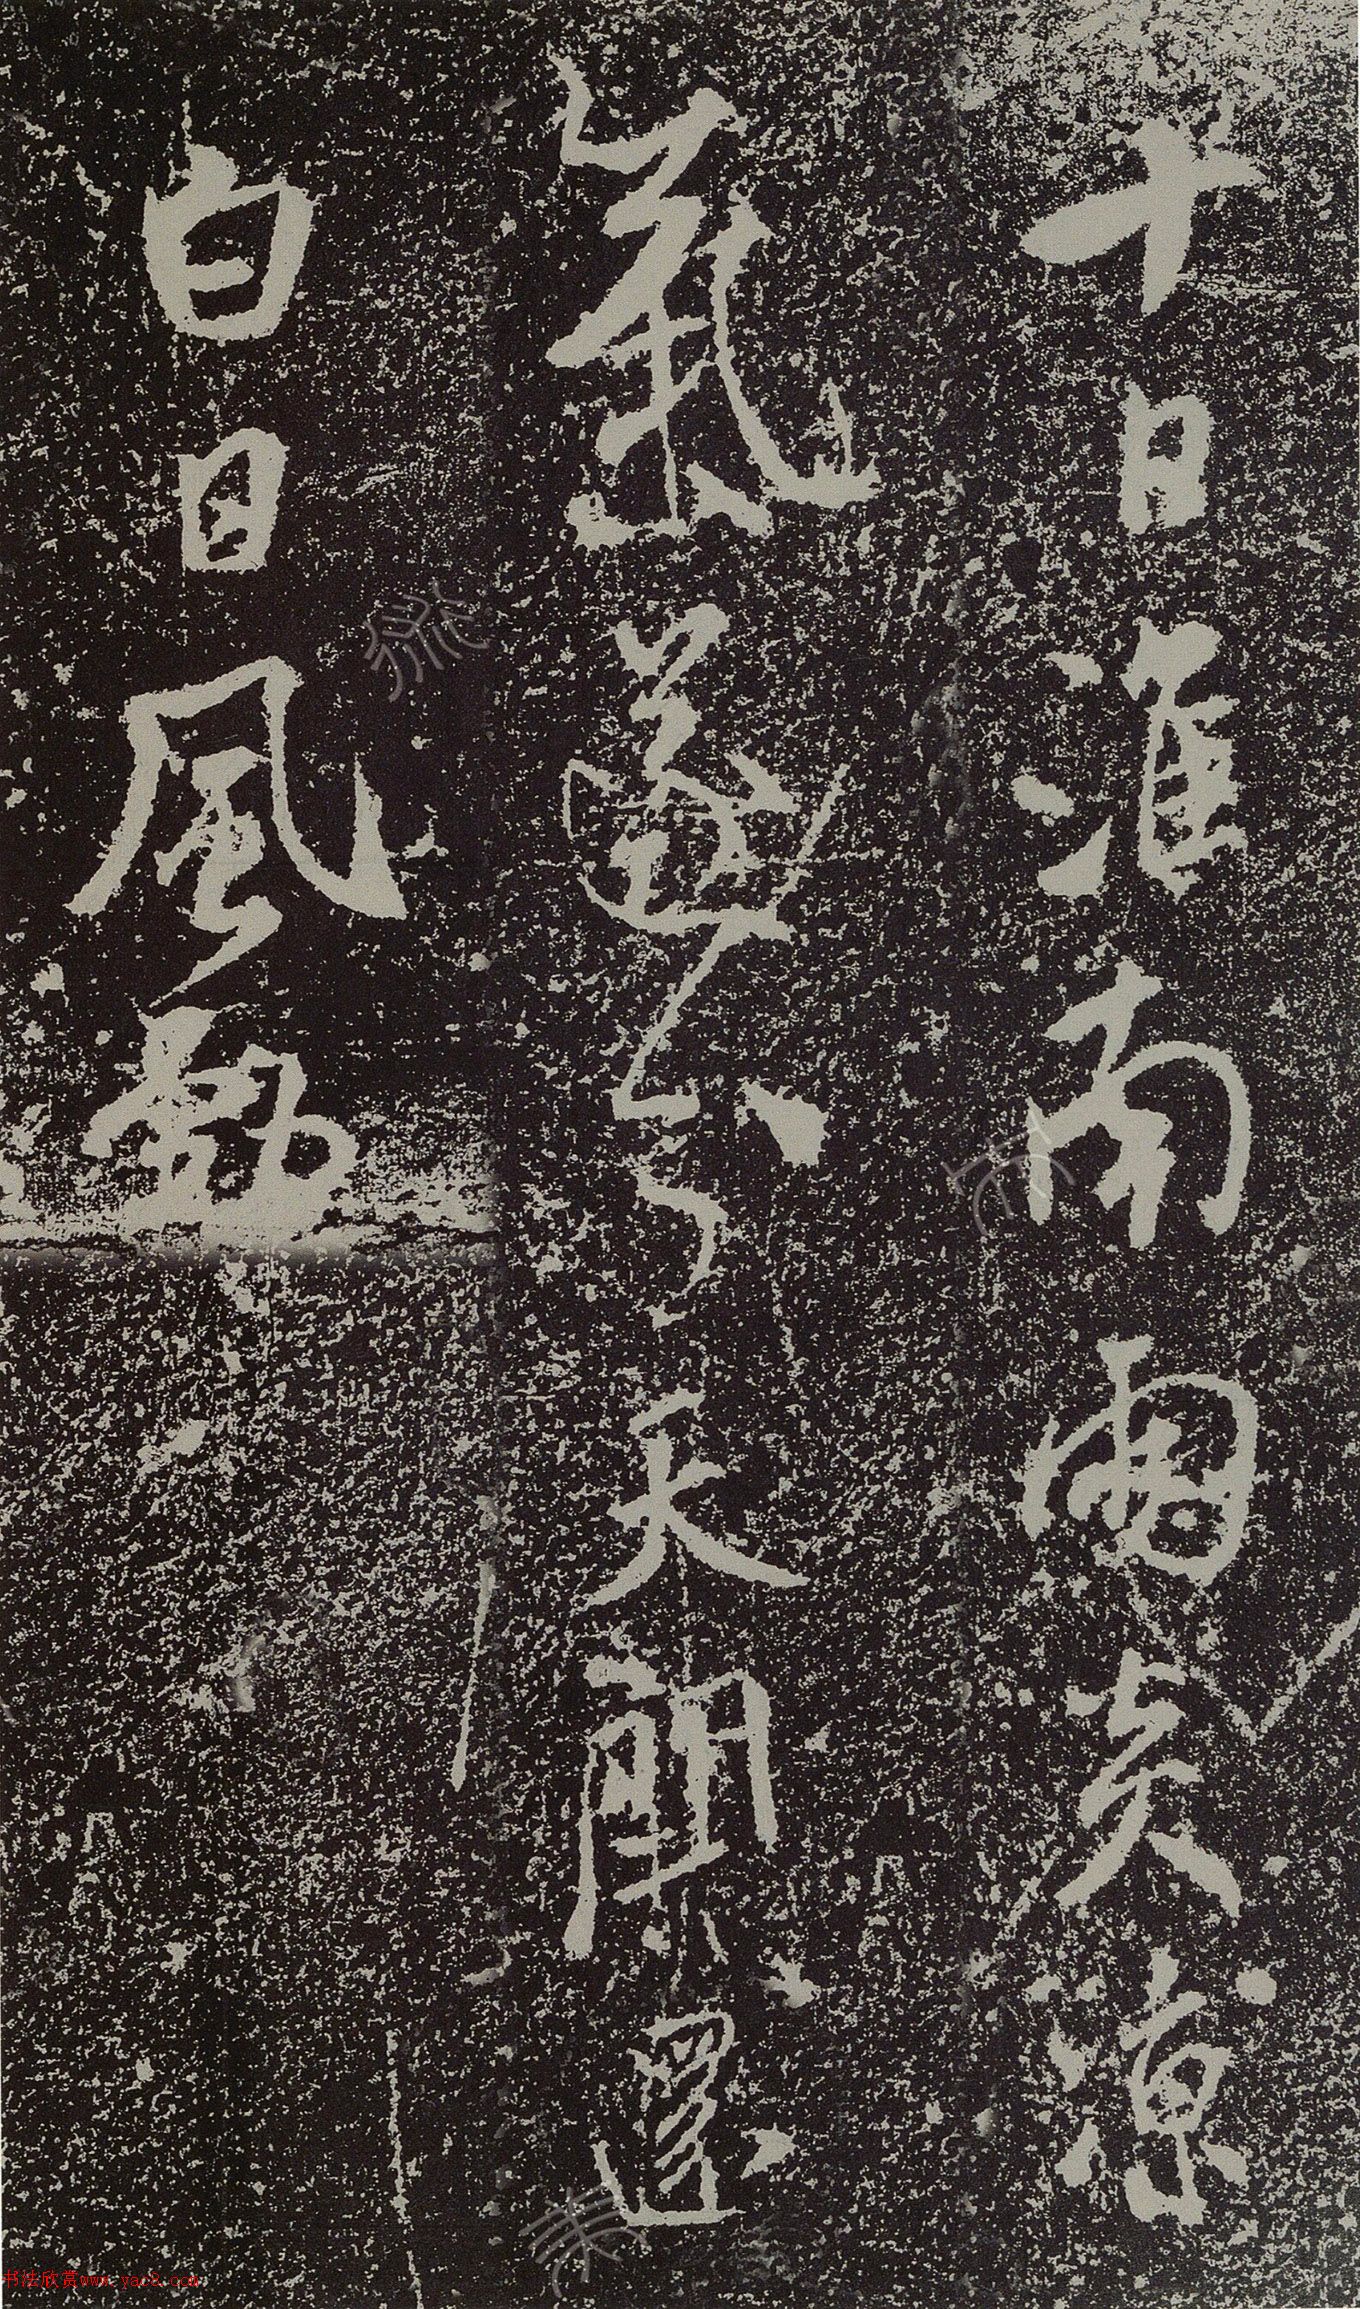 十日淮南雨炎涼
氣遂分天開還
白日風動
书法欣赏www.yac8.com